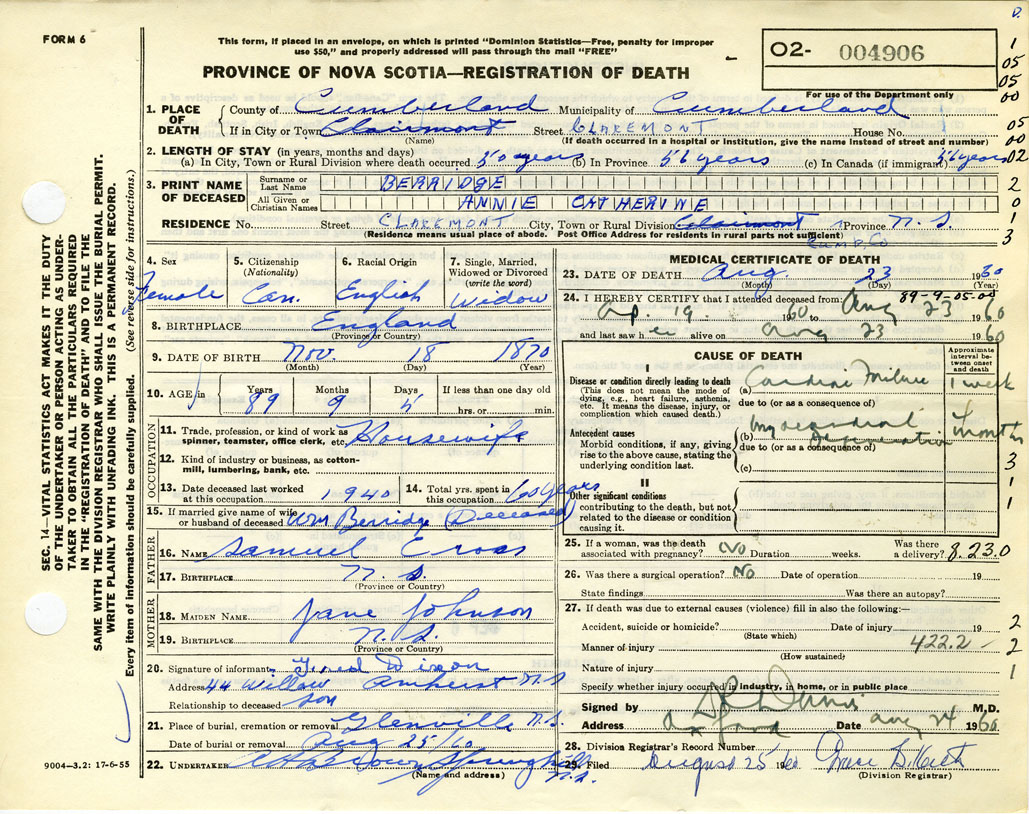 D.
FORM 6
This form, if placed in an envelope, on which is printed "Dominion Statistics—Free, penalty for improper
use $50," and properly addressed will pass through the mail "FREE"
PROVINCE OF NOVA SCOTIA—REGISTRATION OF DEATH
O2- 004906
For use of the Department only
1
05
05
00
05
00
02
2
0
1
3
1. PLACE OF DEATH
County of Cumberland Municipality of Cumberland
If in City or Town Clairmont Street CLAREMONT House No.
(Name) (If death occurred in a hospital or institution, give the name instead of street and number)
2. LENGTH OF STAY (in years, months and days)
(a) In City, Town or Rural Division where death occurred 50 years (b) In Province 56 years (c) In Canada (if immigrant) 56 years
3. PRINT NAME OF DECEASED
Surname or Last Name BERRIDGE
All Given or Christian Names ANNIE CATHERINE
RESIDENCE No. Street CLAREMONT City, Town or Rural Division Clairmont Province N.S.
(Residence means usual place of abode. Post Office Address for residents in rural parts not sufficient)
CUMB. CO
4. Sex
Female
5. Citizenship
(Nationality)
Can.
6. Racial Origin
English
7. Single, Married,
Widowed or Divorced
(write the word)
Widow
8. BIRTHPLACE England
(Province or Country)
9. DATE OF BIRTH Nov. 18 1870
(Month) (Day) (Year)
10. AGE in
Years Months Days If less than one day old
89 9 5 hrs. or min.
OCCUPATION
11. Trade, profession, or kind of work as
spinner, teamster, office clerk, etc. Housewife
12. Kind of industry or business, as cotton-
mill, lumbering, bank, etc.
13. Date deceased last worked
at this occupation 1940
14. Total yrs. spent in
this occupation 60 years
15. If married give name of wife
or husband of deceased Wm Berridge (Deceased)
FATHER
16. NAME Samuel Cross
17. BIRTHPLACE N.S.
(Province or Country)
MOTHER
18. MAIDEN NAME Jane Johnson
19. BIRTHPLACE N.S.
(Province or Country)
20. Signature of informant Dixon
Address 44 Willow Amherst N.S
Relationship to deceased son
21. Place of burial, cremation or removal Glenville N.S.
Date of burial or removal Aug 25/60
22. UNDERTAKER Brown Springhill
(Name and address) N.S.
MEDICAL CERTIFICATE OF DEATH
23. DATE OF DEATH Aug 23 1960
(Month) (Day)
89-9-05-00
24. I HEREBY CERTIFY that I attended deceased from:
Ap. 19 1960 to Aug 23 1960
and last saw her alive on Aug 23 1960
CAUSE OF DEATH
Approximate
interval be-
tween onset
and death
I
Disease or condition directly leading to death
(This does not mean the mode of
dying, e.g., heart failure, asthenia,
etc. It means the disease, injury, or
complication which caused death.)
(a) Cardiac Failure 1 week
due to (or as a consequence of)
Antecedent causes
Morbid conditions, if any, giving
rise to the above cause, stating the
underlying condition last.
(b) Myocardial Degeneration months
due to (or as a consequence of)
(c)
3
1
1
II
Other significant conditions
contributing to the death, but not
related to the disease or condition
causing it.
25. If a woman, was the death
associated with pregnancy? No Duration weeks. Was there
a delivery?
8.23.0
26. Was there a surgical operation? No Date of operation 19
State findings Was there an autopsy?
27. If death was due to external causes (violence) fill in also the following:—
Accident, suicide or homicide? Date of injury 19
(State which)
2
Manner of injury 422.2 — 2
(How sustained)
Nature of injury 1
Specify whether injury occurred in industry, in home, or in public place
Signed by Davis M.D.
Address Oxford Date Aug 24 1960
28. Division Registrar's Record Number
29. Filed August 25 1960 Grace
(Division Registrar)
SEC. 14—VITAL STATISTICS ACT MAKES IT THE DUTY
OF THE UNDERTAKER OR PERSON ACTING AS UNDER-
TAKER TO OBTAIN ALL THE PARTICULARS REQUIRED
IN THE "REGISTRATION OF DEATH" AND TO FILE THE
SAME WITH THE DIVISION REGISTRAR WHO SHALL ISSUE THE BURIAL PERMIT.
WRITE PLAINLY WITH UNFADING INK. THIS IS A PERMANENT RECORD.
Every item of information should be carefully supplied. (See reverse side for instructions.)
9004—3.2: 17-6-55